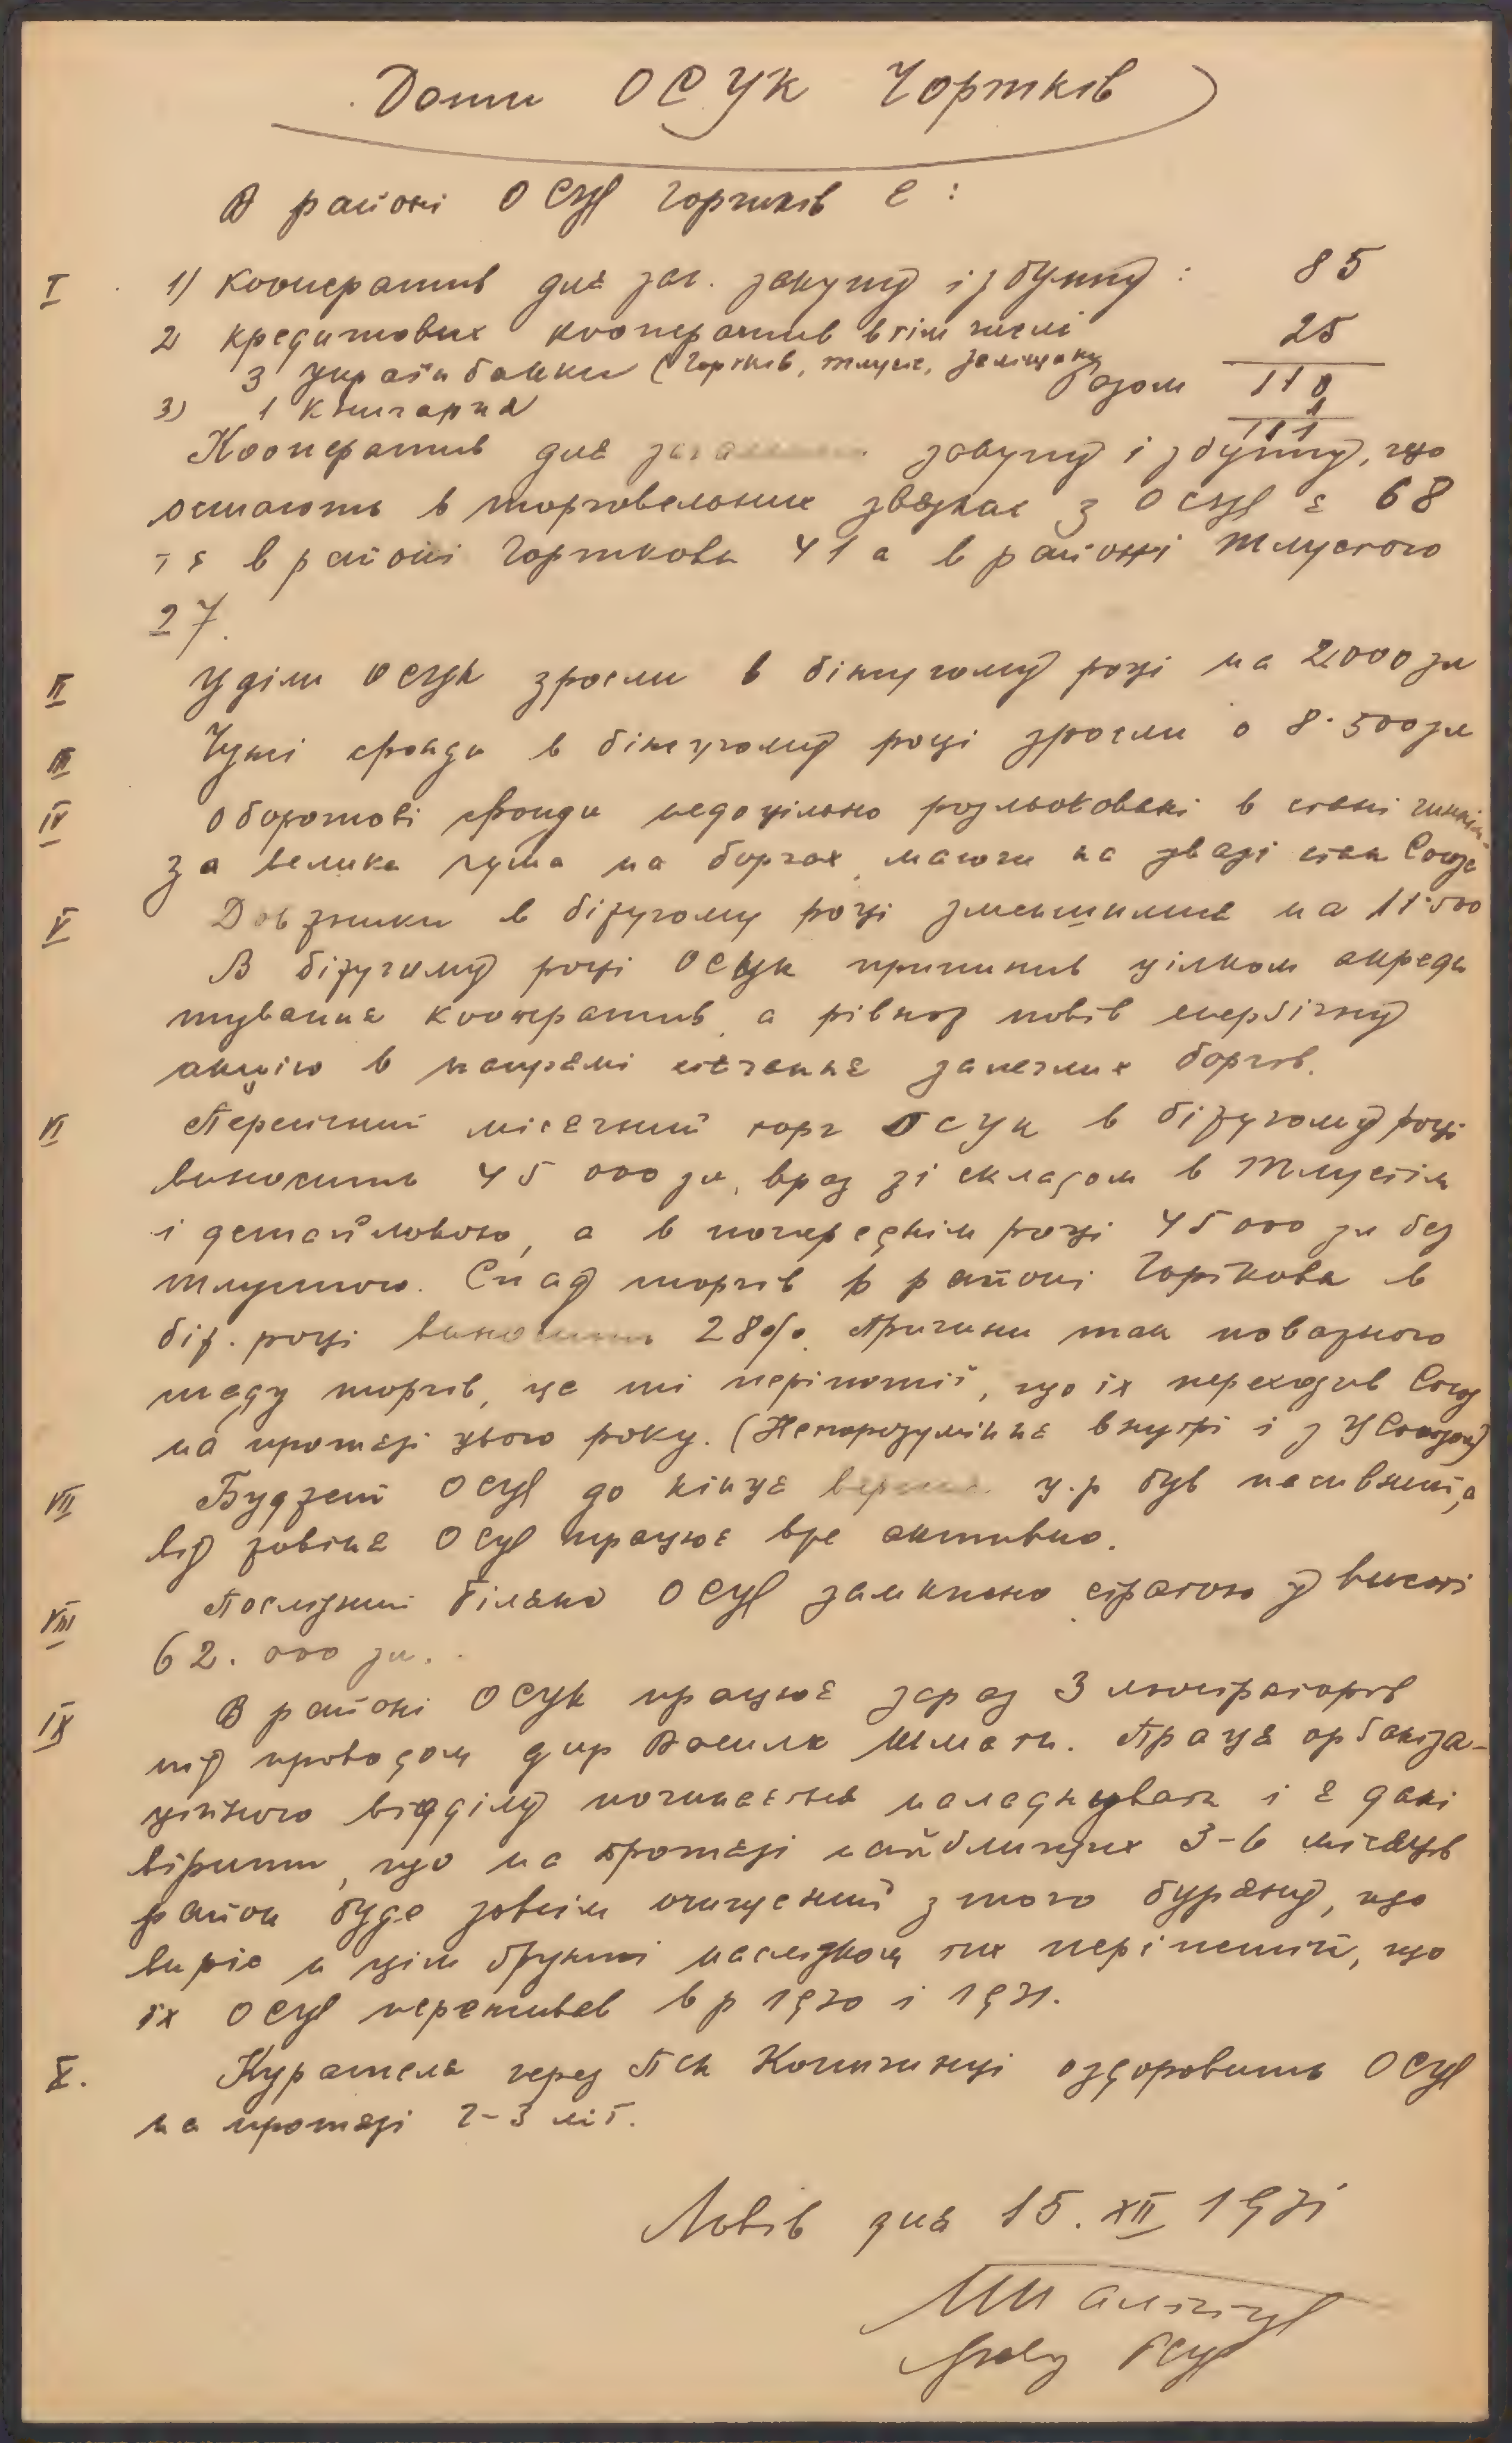 Дати ОСУК Чортків
В районі ОСУК Чортків є:
I 1) Кооператив для заг. закупу і збуту: 85
2 кредитових кооператив в тім числі 25
3 українбанки (Чортків, Тлусте, Заліщики) Разом 110
3) 1 книгарня 1
111
Кооператив для закупу і збуту, що
остають в торговельних звязках з ОСУК є 68
в районі Чорткова 41 а в районі Тлустого
27.
II Уділи ОСУК зросли в біжучому році на 2.000 зл
III Чужі фонди в біжучому році зросли о 8.500 зл
IV Оборотові фонди недоцільно розльоковані в стані
за велика сума на боргах, маючи на увазі стан Союза
V Довжники в біжучому році зменшилися на 11.500
В біжучому році ОСУК припинив цілком акреди
тування кооператив, а рівнож повів енергічну
акцію в напрямі стягання залеглих боргів.
VI Пересічний місячний торг ОСУК в біжучому році
виносить 45 000 зл, враз зі складом в Тлустім
і детайлівкою, а в попереднім році 45 000 зл без
Тлустого. Спад торгів в районі Чорткова в
біж. році виносить 28%. Причини так поважного
спаду торгів, це ті періпетії, що їх переходив Союз
на протязі цього року. (Непорозуміння внутрі і з Ц Союзом)
VII Буджет ОСУК до кінця вересня ц.р був пасивний, а
від жовтня ОСУК працює вже активно.
VIII Послідний білянс ОСУК замкнено стратою у висоті
62.000 зл.
IX В районі ОСУК працює зараз 3 люстраторів
під проводом дир Василя Шмати. Праця орґаніза-
ційного відділу починається наладнувати і є дані
вірити, що на протязі найблищих 3-6 місяців
район буде зовсім очищений з того буряну, що
виріс н цім ґрунті наслідком тих періпетій, що
їх ОСУК переживав в р 1930 і 1931.
X. Курателя через Пна Копичинці оздоровить ОСУК
на протязі 2-3 літ.
Львів дня 15. XII 1931